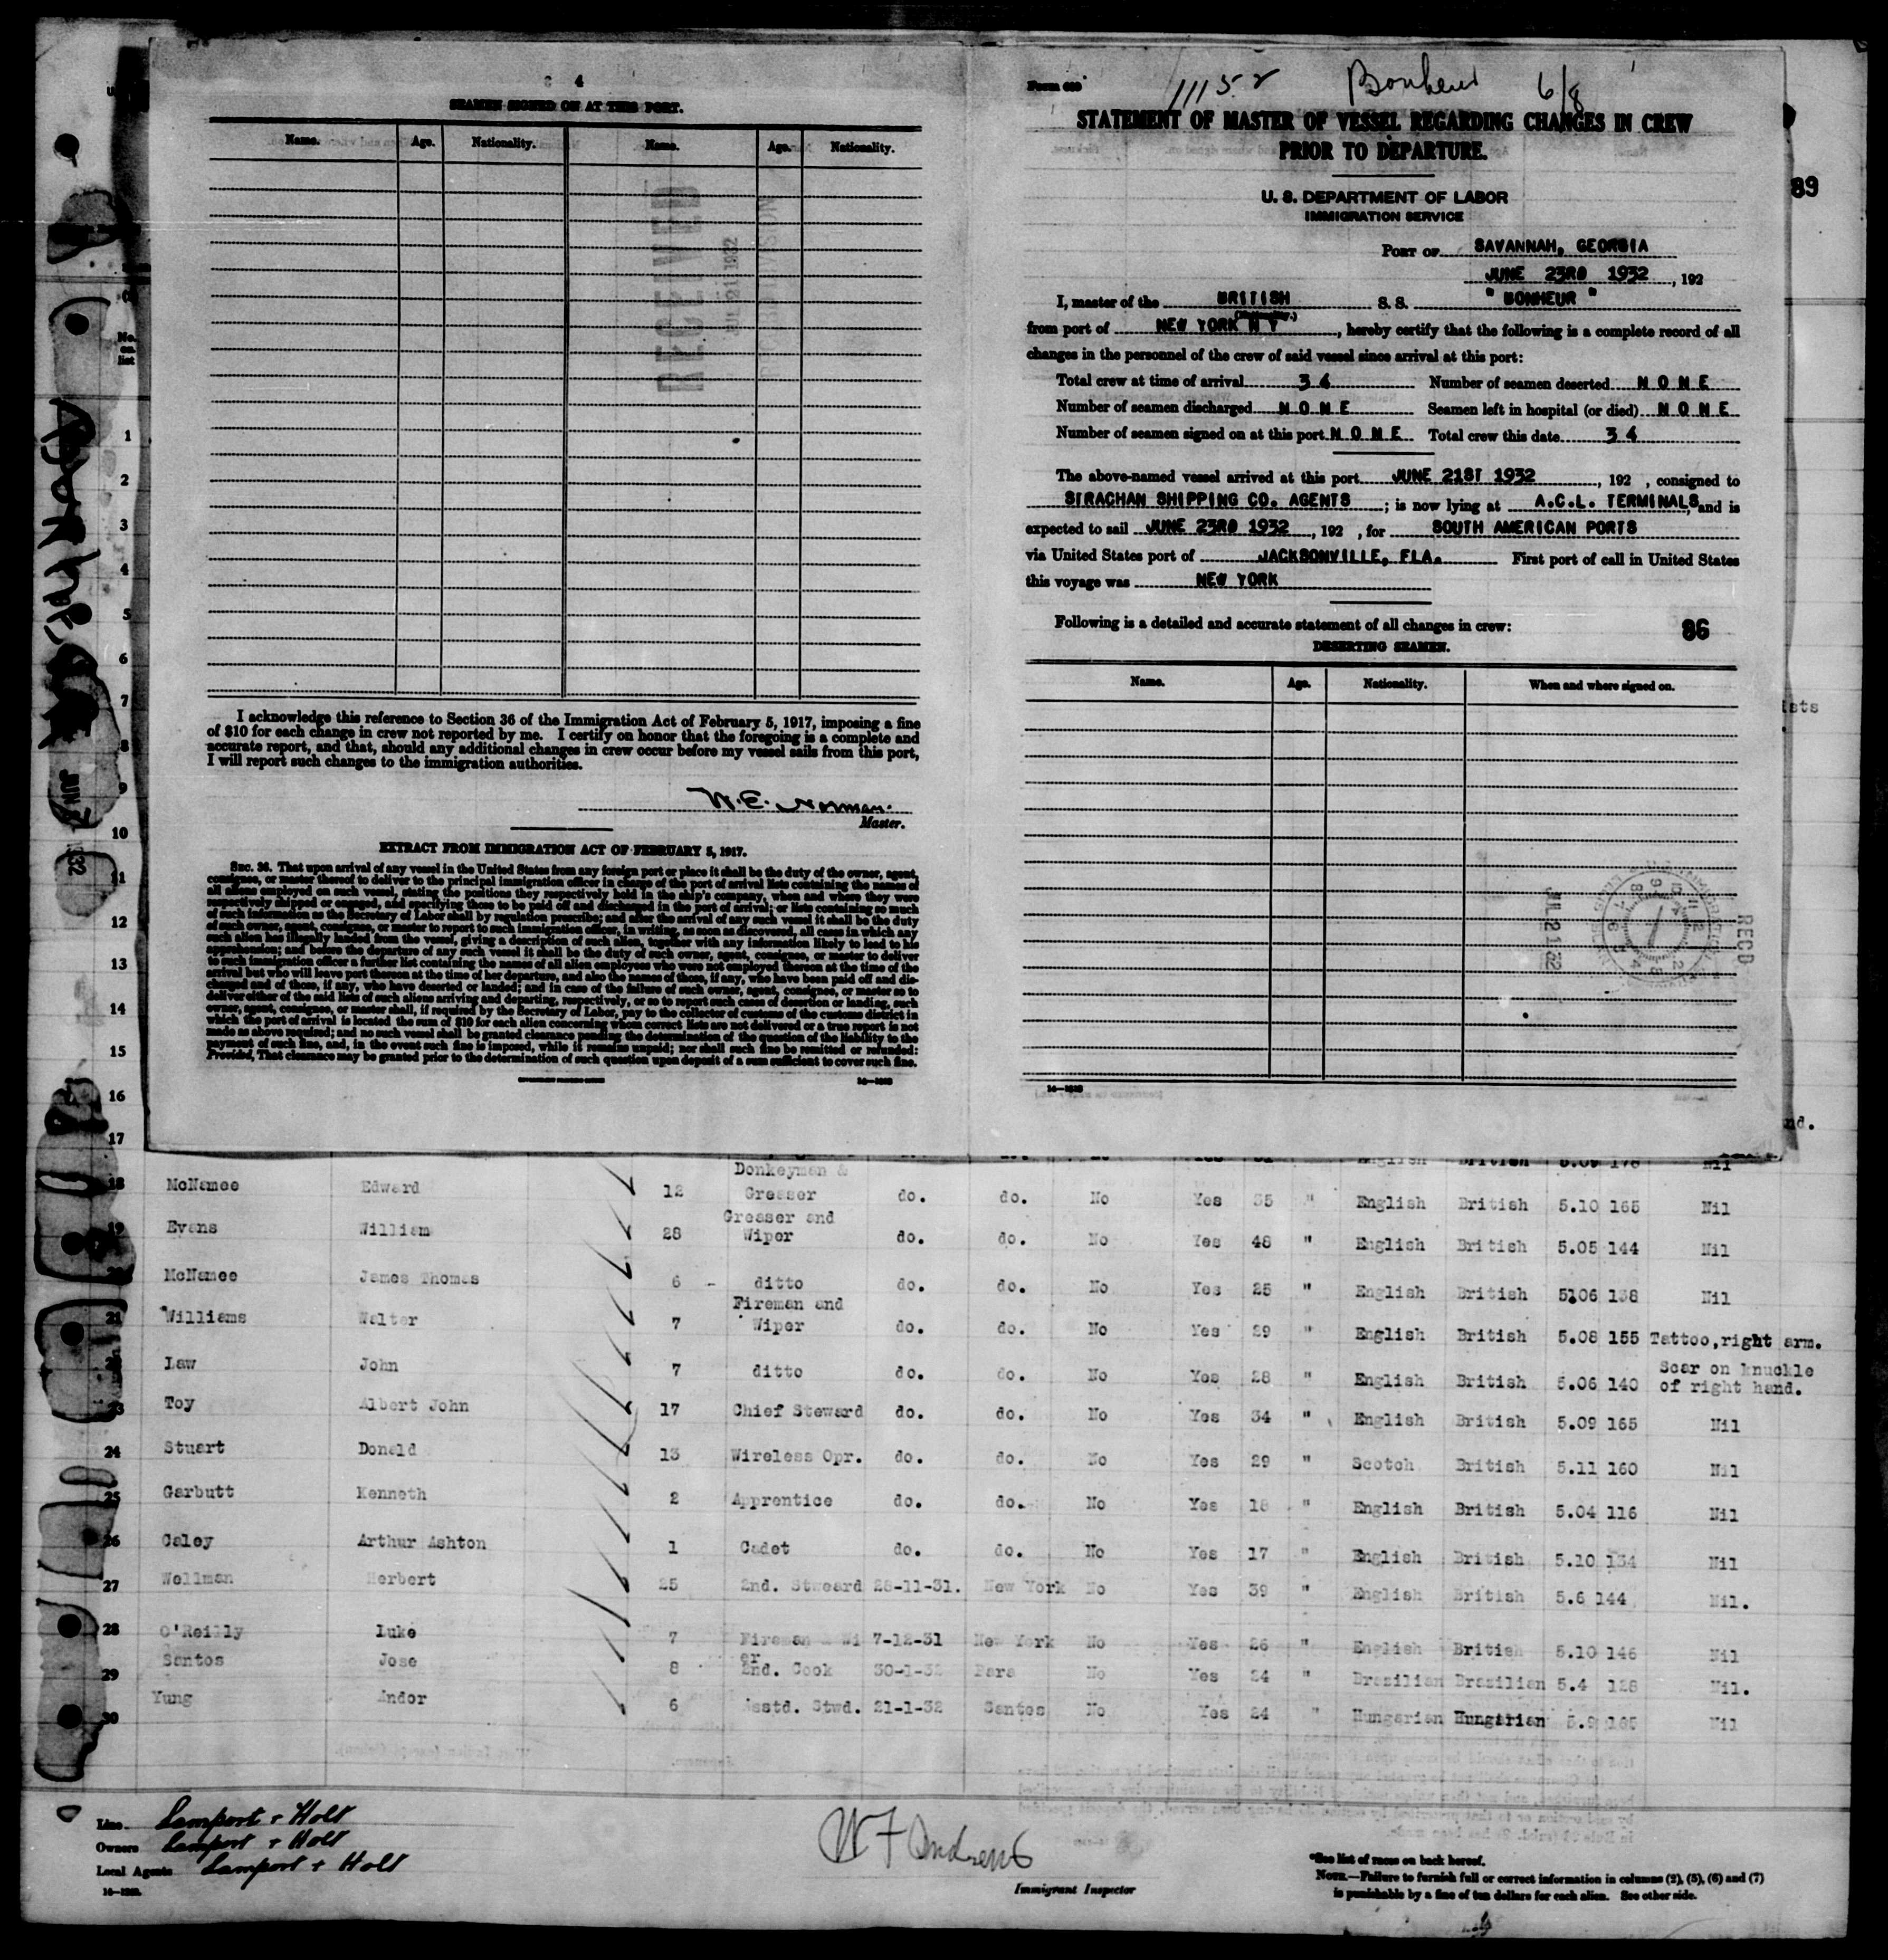 4
SEAMEN SIGNED ON AT THIS PORT.
Name. Age. Nationality. Name. Age. Nationality.
RECEIVED
JUL 21 1932
I acknowledge this reference to Section 36 of the Immigration Act of February 5, 1917, imposing a fine
of $10 for each change in crew not reported by me. I certify on honor that the foregoing is a complete and
accurate report, and that, should any additional changes in crew occur before my vessel sails from this port,
I will report such changes to the immigration authorities.
W. E. Norman.
Master.
EXTRACT FROM IMMIGRATION ACT OF FEBRUARY 5, 1917.
SEC. 36. That upon arrival of any vessel in the United States from any foreign port or place it shall be the duty of the owner, agent,
consignee, or master thereof to deliver to the principal immigration officer in charge of the port of arrival lists containing the names of
all aliens employed on such vessel, stating the positions they respectively hold in the ship's company, when and where they were
respectively shipped or engaged, and specifying those to be paid off and discharged in the port of arrival; or lists containing so much
of such information as the Secretary of Labor shall by regulation prescribe; and after the arrival of any such vessel it shall be the duty
of such owner, agent, consignee, or master to report to such immigration officer, in writing, as soon as discovered, all cases in which any
such alien has illegally landed from the vessel, giving a description of such alien, together with any information likely to lead to his
apprehension; and before the departure of any such vessel it shall be the duty of such owner, agent, consignee, or master to deliver
to such immigration officer a further list containing the names of all alien employees who were not employed thereon at the time of the
arrival but who will leave port thereon at the time of her departure, and also the names of those, if any, who have been paid off and dis-
charged and of those, if any, who have deserted or landed; and in case of the failure of such owner, agent, consignee, or master so to
deliver either of the said lists of such aliens arriving and departing, respectively, or so to report such cases of desertion or landing, such
owner, agent, consignee, or master shall, if required by the Secretary of Labor, pay to the collector of customs of the customs district in
which the port of arrival is located the sum of $10 for each alien concerning whom correct lists are not delivered or a true report is not
made as above required; and no such vessel shall be granted clearance pending the determination of the question of the liability to the
payment of such fine, and, in the event such fine is imposed, while it remains unpaid; nor shall such fine be remitted or refunded:
Provided, That clearance may be granted prior to the determination of such question upon deposit of a sum sufficient to cover such fine.
14—1323
Form 689
11152 Bonheur 6/8
STATEMENT OF MASTER OF VESSEL REGARDING CHANGES IN CREW
PRIOR TO DEPARTURE.
U. S. DEPARTMENT OF LABOR
IMMIGRATION SERVICE
PORT OF SAVANNAH, GEORGIA
JUNE 23RD 1932, 192
I, master of the BRITISH S. S. "BONHEUR"
(Nationality.)
from port of NEW YORK N Y, hereby certify that the following is a complete record of all
changes in the personnel of the crew of said vessel since arrival at this port:
Total crew at time of arrival 34 Number of seamen deserted NONE
Number of seamen discharged NONE Seamen left in hospital (or died) NONE
Number of seamen signed on at this port NONE Total crew this date 34
The above-named vessel arrived at this port JUNE 21ST 1932, 192 , consigned to
STRACHAN SHIPPING CO. AGENTS; is now lying at A.C.L. TERMINALS, and is
expected to sail JUNE 23RD 1932, 192 , for SOUTH AMERICAN PORTS
via United States port of JACKSONVILLE, FLA. First port of call in United States
this voyage was NEW YORK
Following is a detailed and accurate statement of all changes in crew: 86
DESERTING SEAMEN.
Name. Age. Nationality. When and where signed on.
REC'D
JUL 21 32
14—1323
89
ists
nd.
No. on list
1
2
3
4
5
6
7
8
9
10
11
12
13
14
15
16
17
English British 5.09 178 Nil
18 McNamee Edward 12 Donkeyman & Greaser do. do. No Yes 35 " English British 5.10 165 Nil
19 Evans William 28 Greaser and Wiper do. do. No Yes 48 " English British 5.05 144 Nil
20 McNamee James Thomas 6 - ditto do. do. No Yes 25 " English British 5106 138 Nil
21 Williams Walter 7 Fireman and Wiper do. do. No Yes 29 " English British 5.08 155 Tattoo,right arm.
22 Law John 7 ditto do. do. No Yes 28 " English British 5.06 140 Scar on knuckle of right hand.
23 Toy Albert John 17 Chief Steward do. do. No Yes 34 " English British 5.09 165 Nil
24 Stuart Donald 13 Wireless Opr. do. do. No Yes 29 " Scotch British 5.11 160 Nil
25 Garbutt Kenneth 2 Apprentice do. do. No Yes 18 " English British 5.04 116 Nil
26 Caley Arthur Ashton 1 Cadet do. do. No Yes 17 " English British 5.10 134 Nil
27 Wellman Herbert 25 2nd. Stweard 28-11-31. New York No Yes 39 " English British 5.6 144 Nil.
28 O'Reilly Luke 7 Fireman & Wi er 7-12-31 New York No Yes 26 " English British 5.10 146 Nil
29 Santos Jose 8 2nd. Cook 30-1-32 Para No Yes 24 " Brazilian Brazilian 5.4 128 Nil.
30 Yung Andor 6 Asstd. Stwd. 21-1-32 Santos No Yes 24 " Hungarian Hungarian 5.9 165 Nil
Line Lamport + Holt
Owners Lamport + Holt
Local Agents Lamport + Holt
W F Andrews
Immigrant Inspector
*See list of races on back hereof.
NOTE.—Failure to furnish full or correct information in columns (2), (5), (6) and (7)
is punishable by a fine of ten dollars for each alien. See other side.